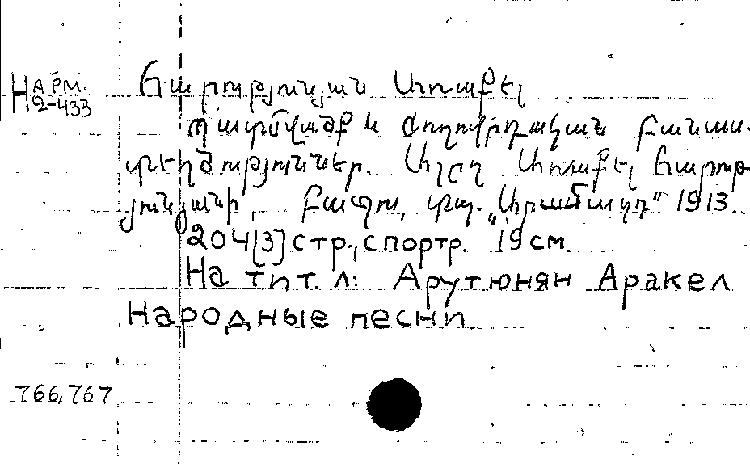 На рм.
2-433
Հարությունյան Առաքել
Պատմվածք և ժողովրդական բանաս-
տեղծություններ. Աշըղ Առաքել Հարութ-
յունյանի, Բաքու, տպ. „Արամազդ" 1913
204[3] стр., с портр. 19 см
На тит. л: Арутюнян Аракел
Народные песни
766,767